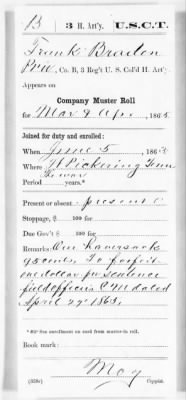 B | 3 H. Art'y. | U.S.C.T.
Frank Braden
Priv, Co. B, 3 Reg't U. S. Col'd H. Art'y
Appears on
Company Muster Roll
for Mar & Apr, 1865
Joined for duty and enrolled:
When June 5, 186
Where Ft Pickering Tenn
Period years.*
Present or absent present
Stoppage, $ 100 for
Due Gov't $ 100 for
Remarks: One Haversack
95 cents. To forfeit
one dollar per sentence
field officers C M dated
April 22 1865
*See enrollment on card from muster-in roll.
Book mark:
May
(358c) Copyist.